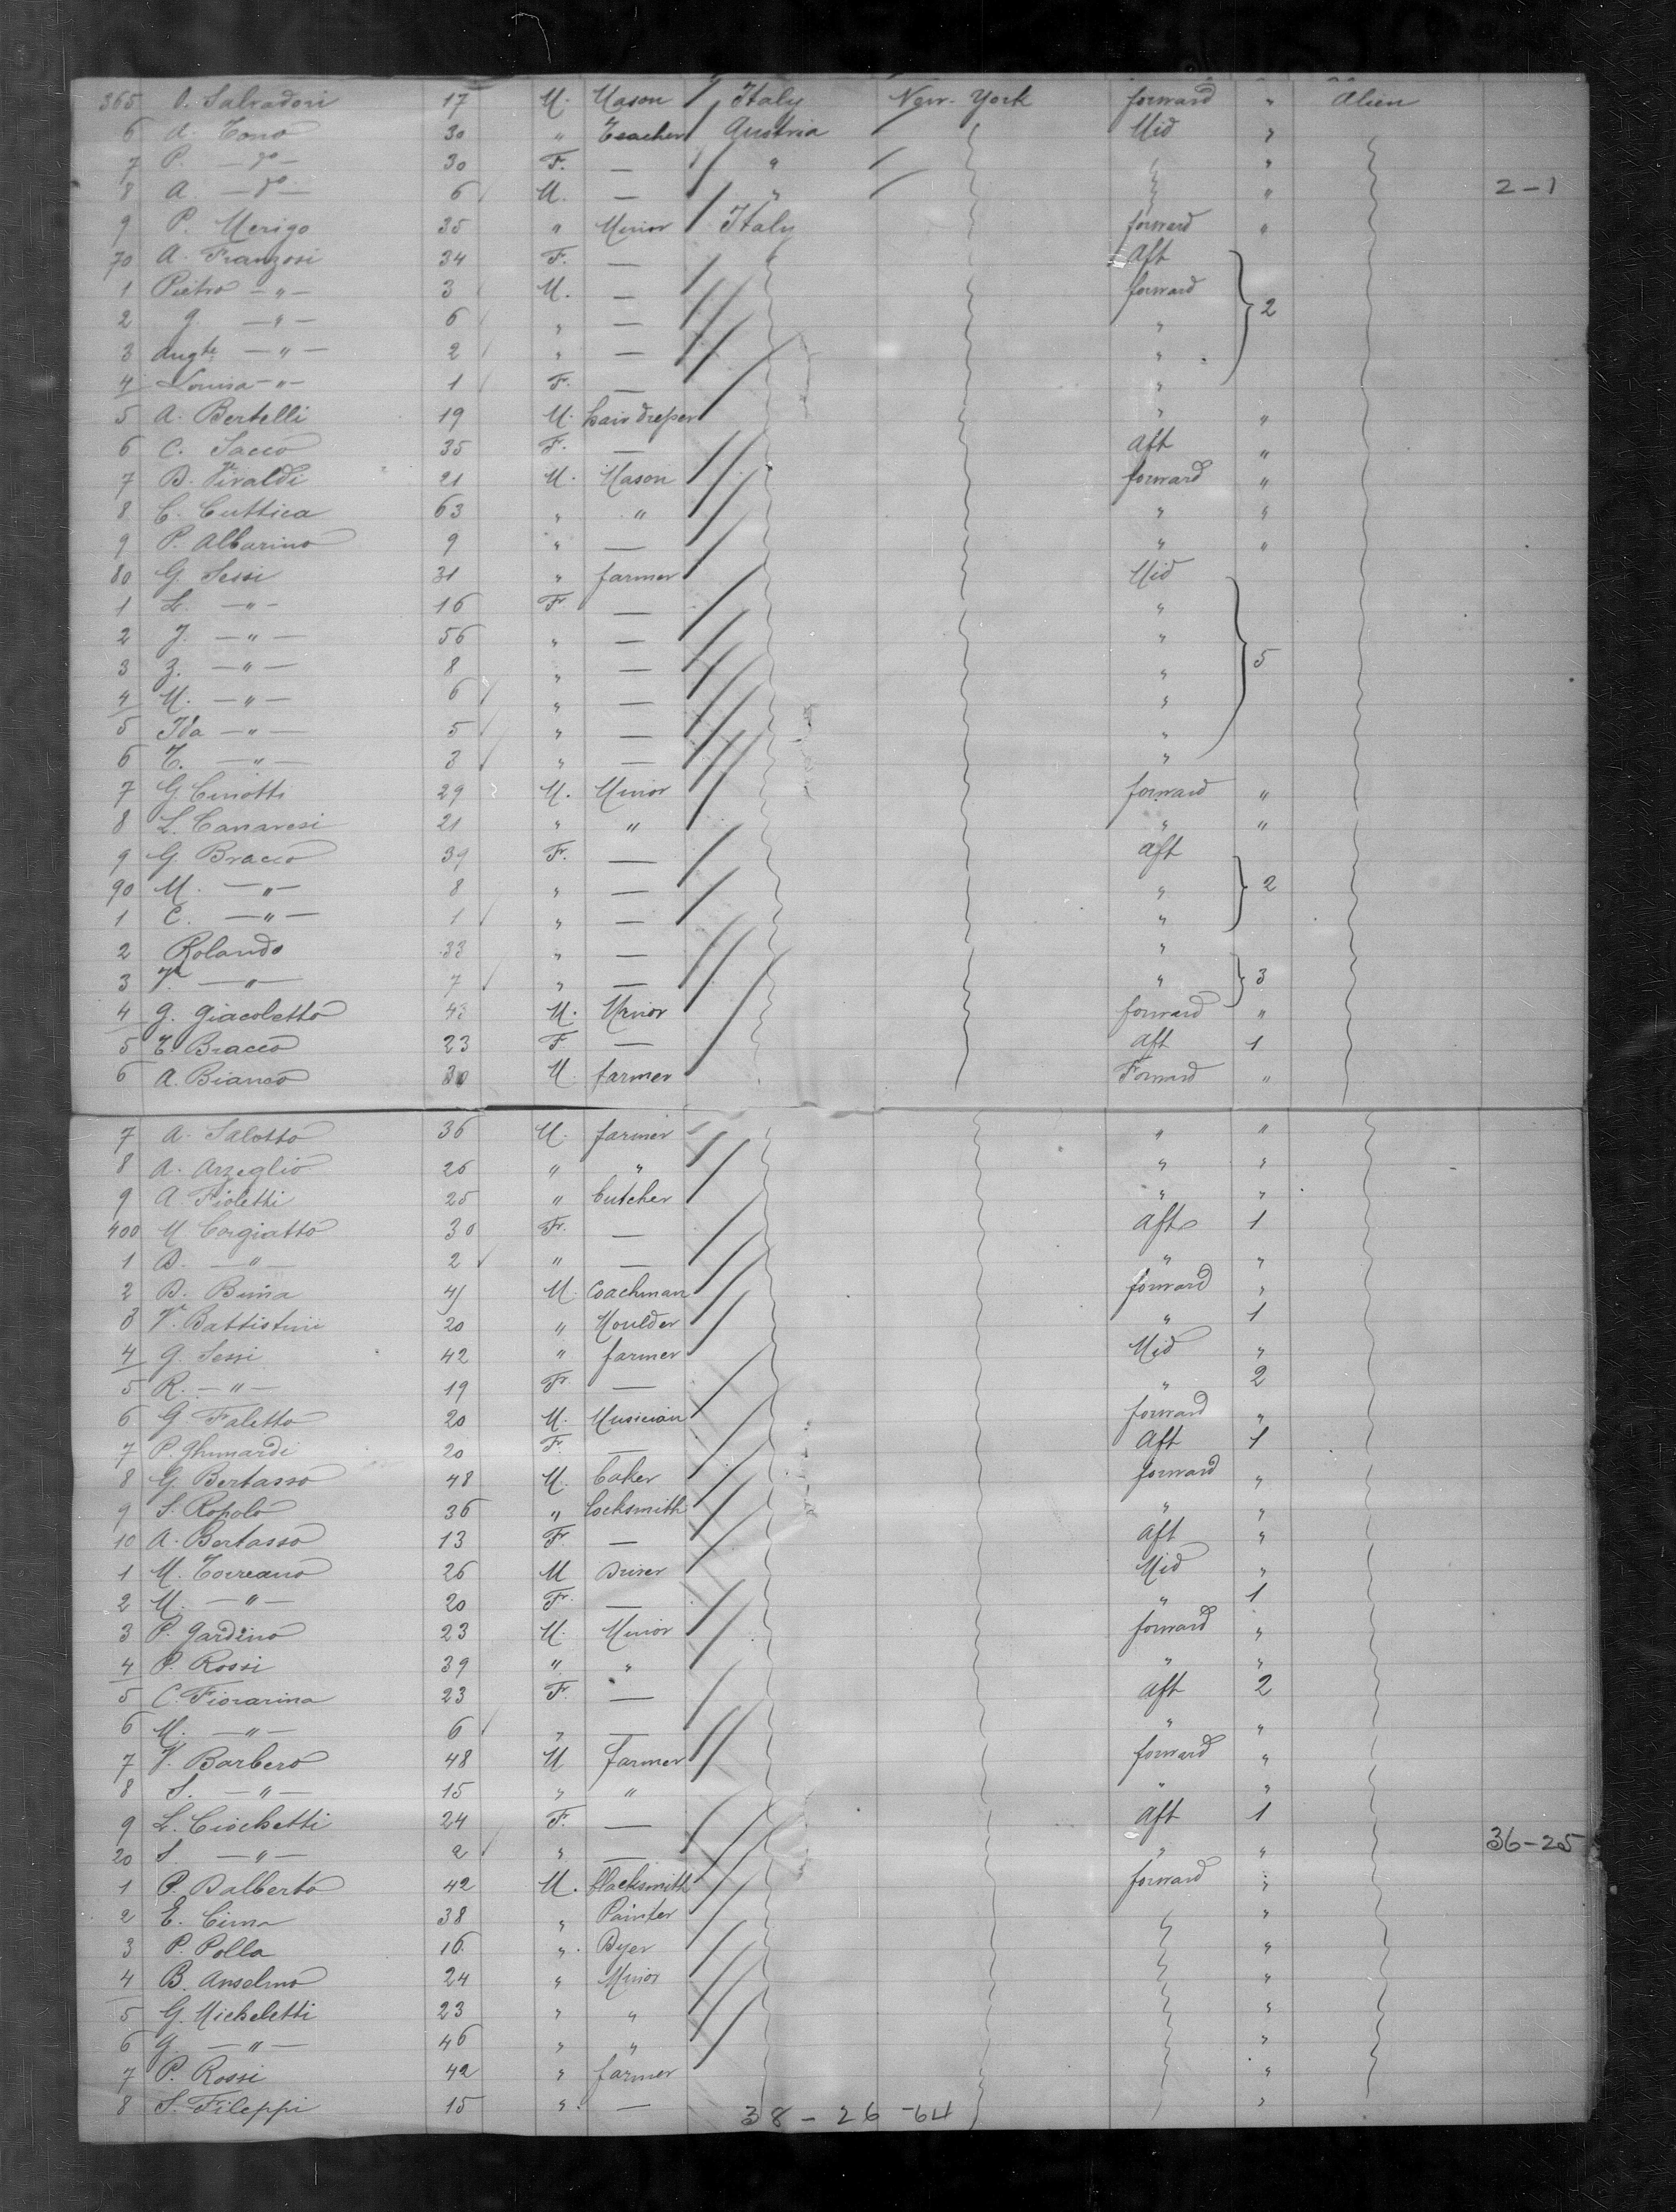 365 O. Salvadori 17 M. Mason Italy New-York forward " Alien
6 A. Tono 30 " Teacher Austria Mid "
7 P. — do — 30 F. — " "
8 A. — do — 6 M. — " " 2-1
9 P. Merigo 35 " Minor Italy forward "
70 A. Franzosi 34 F. — Aft
1 Pietro — " — 3 M. — forward 2
2 G. — " — 6 " — "
3 Augte — " — 2 " — "
4 Louisa — " — 1 F. — "
5 A. Bertelli 19 M. hair dresser " "
6 C. Sacco 35 F. — Aft "
7 D. Vivaldi 21 M. Mason forward "
8 C. Cuttica 63 " " " "
9 P. Albarino 9 " — " "
80 G. Sessi 31 " farmer Mid
1 L. — " — 16 F — "
2 J. — " — 56 " — "
3 Z. — " — 8 " — " 5
4 M. — " — 6 " — "
5 Ida — " — 5 " — "
6 T. — " — 3 " — "
7 G. Cinotti 29 M. Minor forward "
8 L. Canavesi 21 " " " "
9 G. Bracco 39 F. — aft
90 M. — " — 8 " — " 2
1 C. — " — 1 " — "
2 Rolando 33 " — "
3 V. — " — 7 " — " 3
4 G. Giacoletto 43 M. Minor forward "
5 T. Bracco 23 F — aft 1
6 A. Bianco 30 M. farmer Forward "
7 A. Salotto 36 M. farmer " "
8 A. Arzeglio 26 " " " "
9 A. Fioletti 25 " butcher " "
400 M. Corgiatto 30 F. — aft 1
1 D. — " — 2 " — " "
2 D. Bima 41 M. Coachman forward "
3 V. Battistini 20 " Moulder " 1
4 G. Sessi 42 " farmer Mid "
5 R. — " — 19 F. — " 2
6 G. Faletto 20 M. Musician forward "
7 P. Ghunardi 20 F. — Aft 1
8 G. Bertasso 48 M. baker forward "
9 S. Ropolo 36 " locksmith " "
10 A. Bertasso 13 F. — Aft "
1 M. Correano 26 M Driver Mid "
2 M. — " — 20 F. — " 1
3 P. Gardino 23 M. Minor forward "
4 P. Rossi 39 " " " "
5 C. Fiorarina 23 F. — Aft 2
6 M. — " — 6 " — " "
7 V. Barbero 48 M farmer forward "
8 S. — " — 15 " " " "
9 L. Ciochetti 24 F. — Aft 1
20 S — " — 2 " — " " 36-25
1 P. Dalberto 42 M. blacksmith forward "
2 E. Cima 38 " Painter "
3 P. Polla 16 " Dyer "
4 B. Anselmo 24 " Minor "
5 G. Micheletti 23 " " "
6 G. — " — 46 " " "
7 P. Rossi 42 " farmer "
8 S. Fileppi 15 " — "
38-26-64